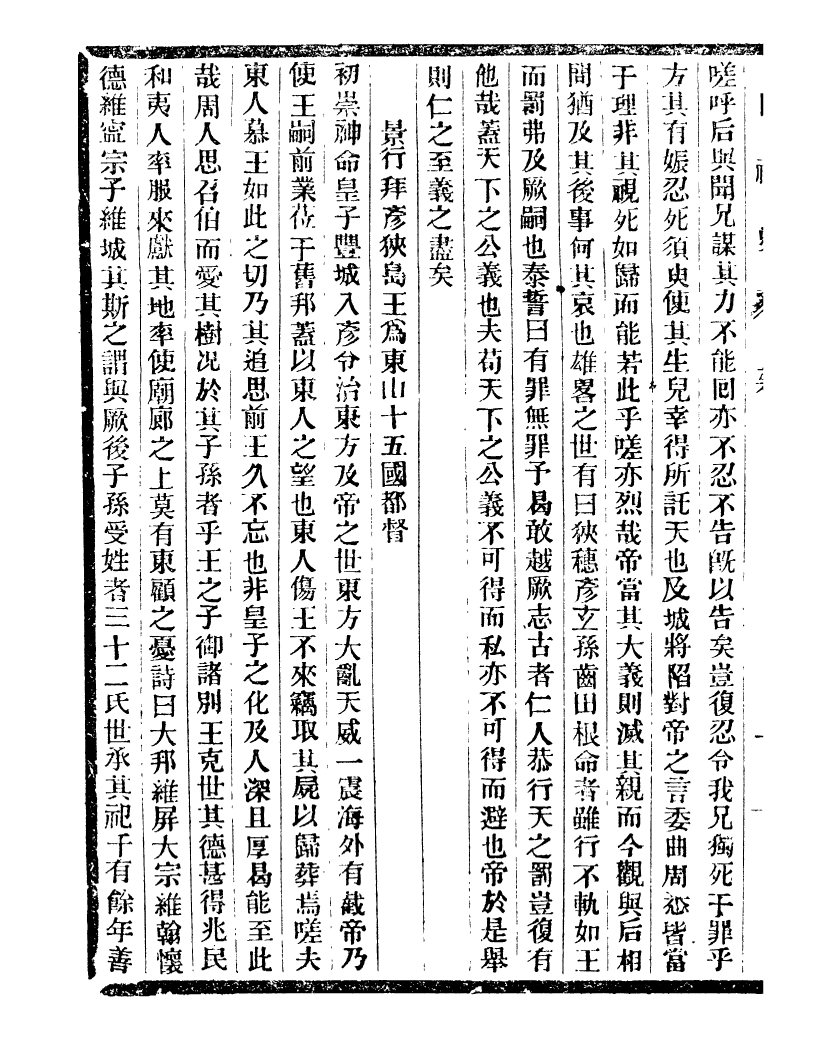 嗟呼后與聞兄謀其力不能回亦不忍不告旣以告矣豈復忍令我兄獨死于罪乎
方其有娠忍死須臾使其生兒幸得所託天也及城將陷對帝之言委曲周悉皆當
于理非其視死如歸而能若此乎嗟亦烈哉帝當其大義則滅其親而今觀與后相
問猶及其後事何其哀也雄畧之世有曰狹穗彥玄孫齒田根命者雖行不軌如王
而罰弗及厥嗣也泰誓曰有罪無罪予曷敢越厥志古者仁人恭行天之罰豈復有
他哉蓋天下之公義也夫苟天下之公義不可得而私亦不可得而避也帝於是舉
則仁之至義之盡矣
景行拜彥狹島王爲東山十五國都督
初崇神命皇子豐城入彥令治東方及帝之世東方大亂天威一震海外有截帝乃
使王嗣前業莅于舊邦蓋以東人之望也東人傷王不來竊取其屍以歸葬焉嗟夫
東人慕王如此之切乃其追思前王久不忘也非皇子之化及人深且厚曷能至此
哉周人思召伯而愛其樹况於其子孫者乎王之子御諸別王克世其德甚得兆民
和夷人率服來獻其地率使廟廊之上莫有東顧之憂詩曰大邦維屏大宗維翰懷
德維寍宗子維城其斯之謂與厥後子孫受姓者三十二氏世承其祀千有餘年善